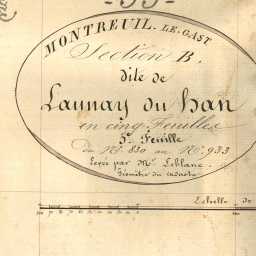 MONTREUIL-LE-GAST
Section B.
dite de
Launay du han
en cinq Feuilles
5e Feuille
du No. 830 au No. 933
Levée par Mr. Leblanc
Géomètre du cadastre
Echelle de